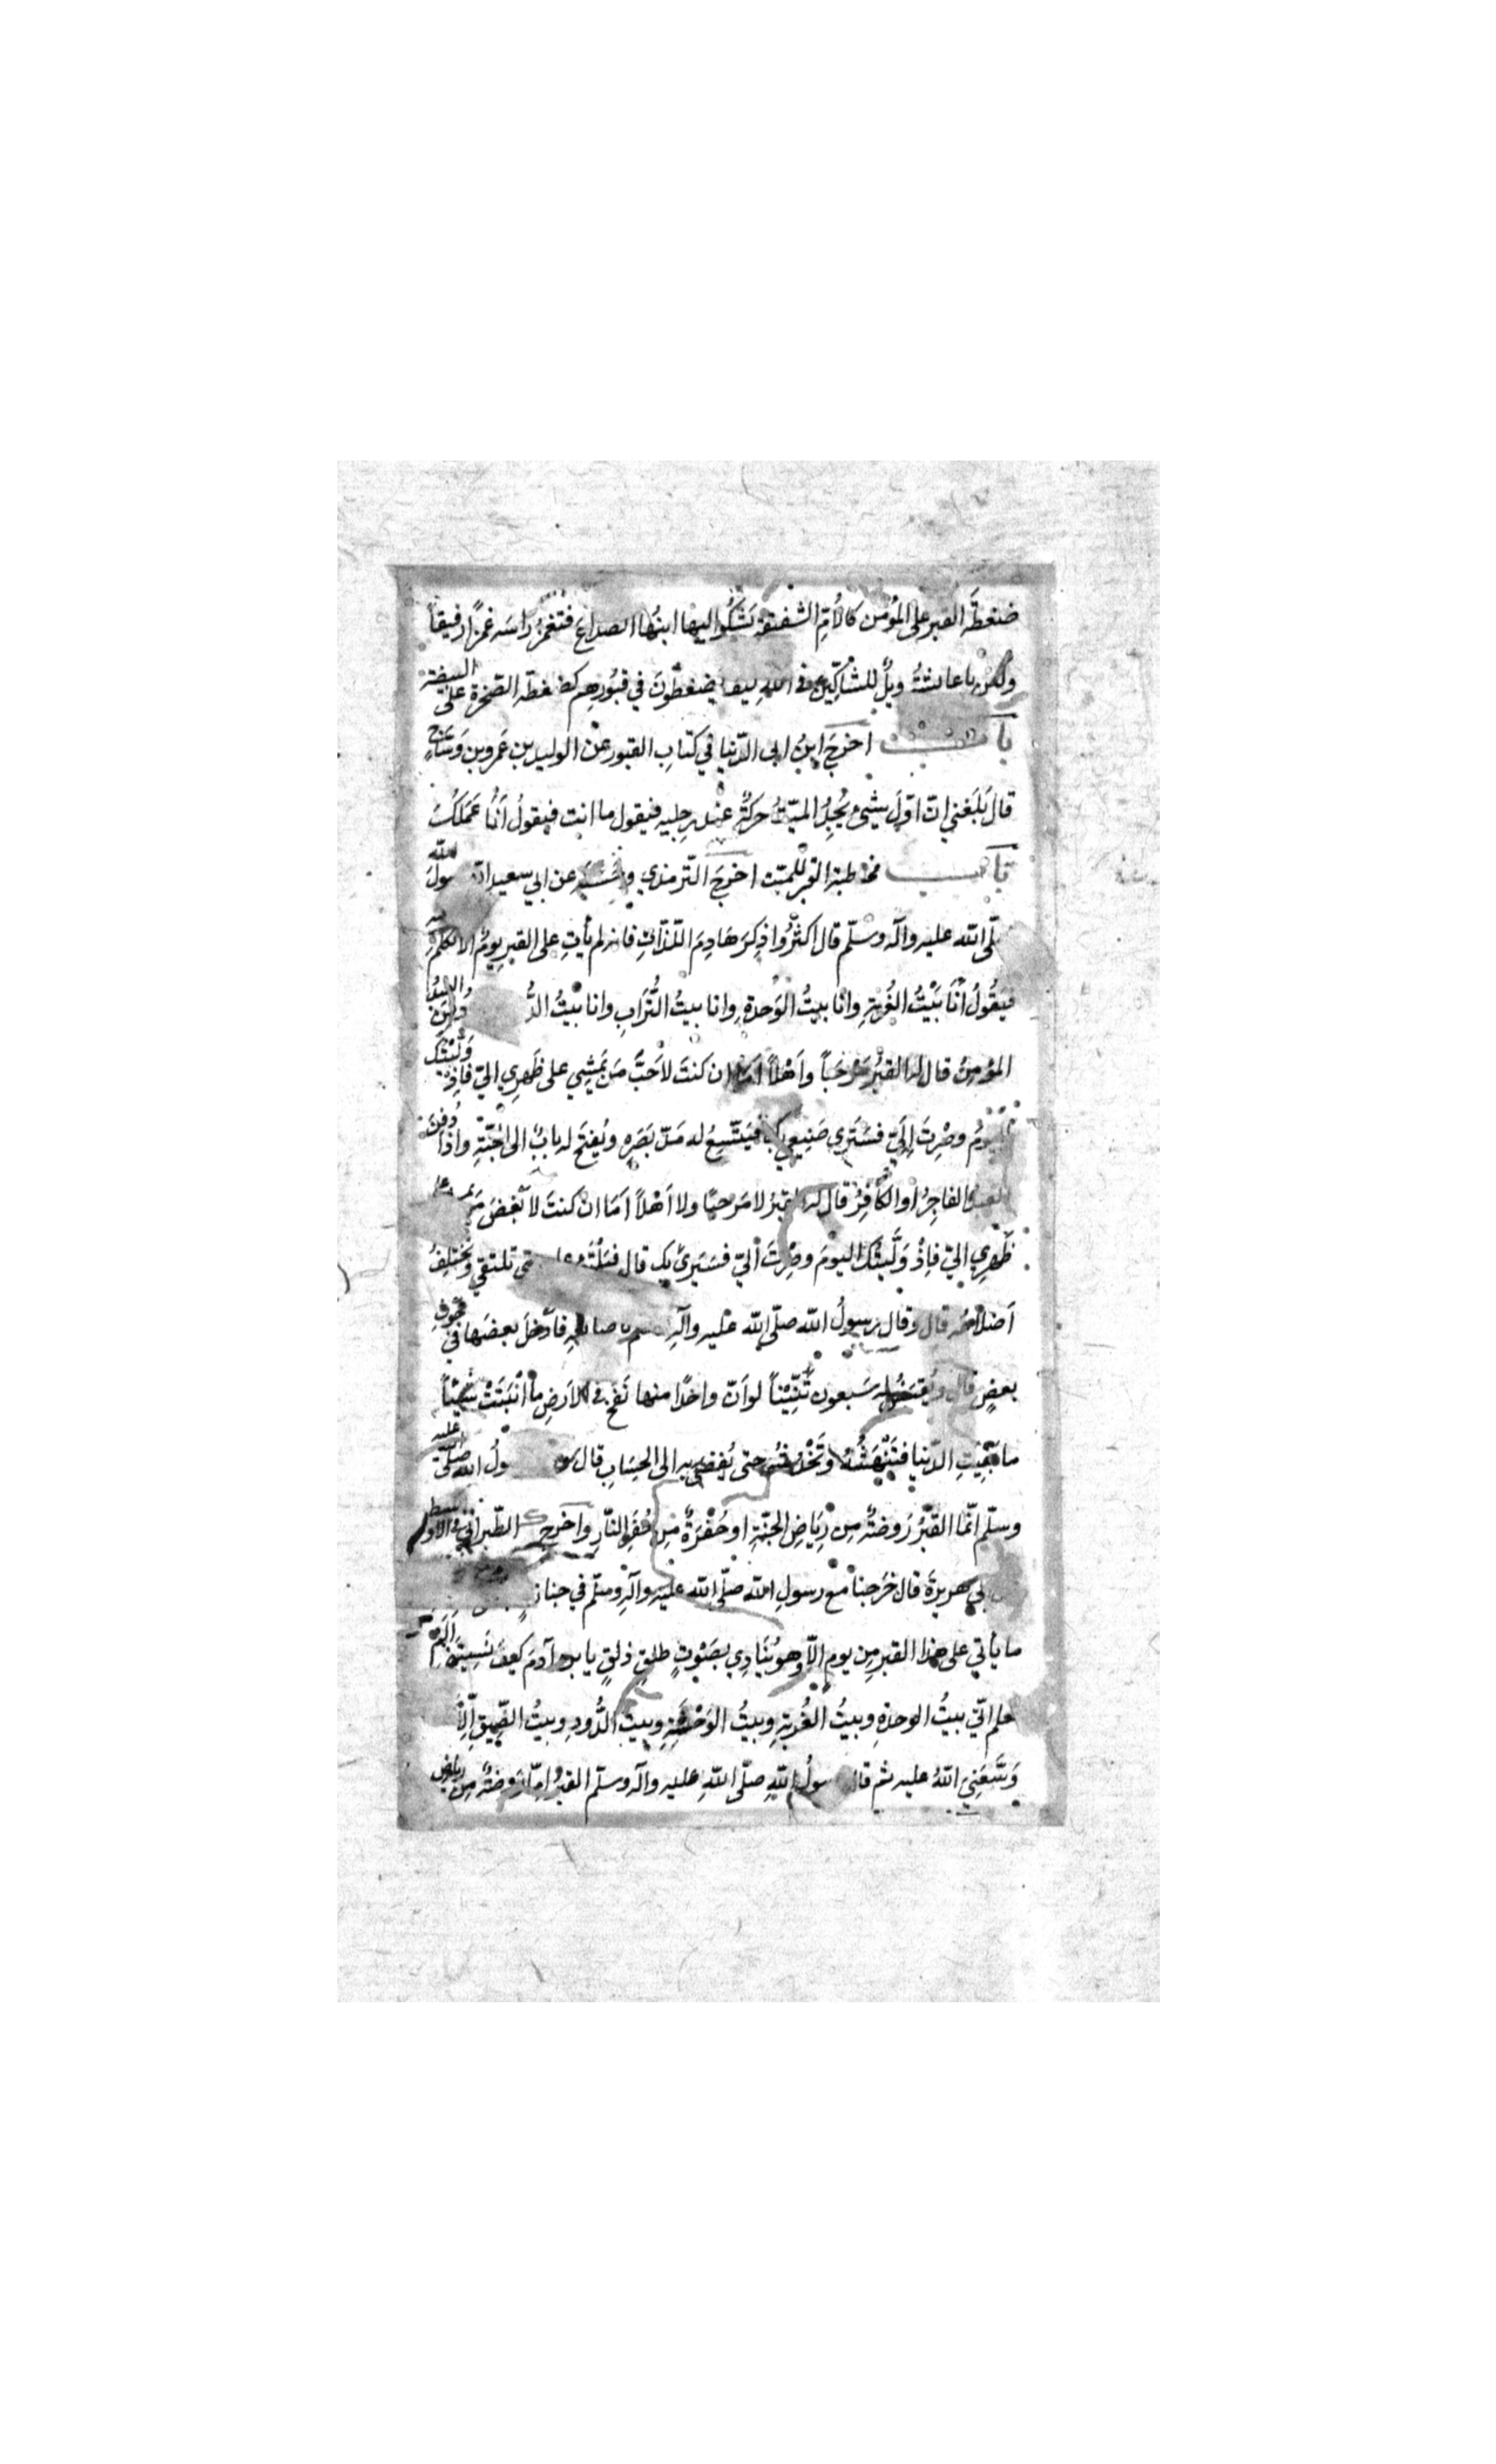 ضغطَة القبر على المؤمن كالأمّ الشفيقة يَشْكُو اليها ابنُها الصداعَ فتَغمِزُ راسَه غمزًا رفيقاً
ولكن يا عائشةُ ويلٌ للشاكّين في الله كيف يُضغطُونَ في قبُورهم كضغطة الصّخرة على البيضة
باب اخرجَ ابنُ ابى الدّنيا في كتابِ القبور عن الوليد بن عمرو بن وَسّاجٍ
قال بَلَغني انّ اوّلَ شيءٍ يجِدُ الميّتُ حركةٌ عند رجليه فيقول ما انت فيقولُ أنَا عَمَلكَ
باب مخاطبة القبر للميّت اخرجَ التّرمذي وحَسَّنه عن ابي سعيد انّ رسولَ الله
صلّى الله عليه وآله وسلّم قال اكثرُوا ذِكرَ هَادِمَ اللّذّاتِ فانه لم يأتِ على القبرِ يومٌ الا تكلّم فيه
فيَقُولُ أنَا بَيْتُ الغُربةِ وانا بيتُ الوَحدةِ وانا بيتُ التُّرَابِ وانا بيْتُ الدُّ دُفِنَ
المؤمِنُ قال له القبْرُ مَرْحَباً وأهْلاً أمَا ان كنتَ لاَحَبَّ مَن يَمشِي على ظَهرِي اليّ فاِذْ وَلّيْتُك
اليَومُ وصْرِتَ اِلَيّ فسَتَرى صَنِيعي بك فيَتّسِعُ له مَدّ بَصَرِه ويُفتَح له بابٌ الى الجَنّةِ واذا دُفِنَ
العبدُ الفاجِرُ او الكافِرُ قال له القبرُ لا مَرحبًا ولا اَهْلاً اَمَا انْ كنتَ لاَبْغضَ مَن
ظَهرِي اليّ فاِذْ وَلّيتُك اليومَ وصْرِتَ اليّ فسَتَرى بك قال فيَلْتَئِم عليه حتى تلتقي وتَختلِفُ
اَضلاعُه قال وقال رسولُ الله صلّى الله عليه وآلِه وسلم باصابعِه فأدخلَ بعضَها في جَوفِ
بعضٍ قال ويُقيّضُ له سَبعون تِنّيْناً لو اَنّ واحدًا منها نَفخ في الاَرضِ ما أنبَتَتْ شَيْئاً
ما بَقِيَتِ الدّنيا فتَنْهَشُهُ وتَخْدِشُه حتى يُفضى به الى الحِسَابِ قال رسولُ الله صلّى عليه
وسلّم انّما القبْرُ رَوضةٌ من رِيَاضِ الجنّةِ او حُفْرَةٌ مِن حُفَرِ النّارِ واخرج الطّبراني في الاوسط
عن ابي هريرةَ قال خَرَجنا مع رسولِ الله صلّى الله عليه وآلِه وسلّم في جنازةٍ
ما يأتي على هذا القبر مِن يوم الاّ وهو يُنَادِي بصَوْتٍ طلقٍ ذلقٍ يا بن آدمَ كيفَ نَسِيتَنِي اَلَمْ
تعلم انّي بيتُ الوحدةِ وبيتُ الغُربةِ وبيتُ الوَحْشَةِ وبيتُ الدُّودِ وبيتُ الضّيقِ اِلّا مَن
وَسَّعَنِي اللهُ عليه ثم قال رسولُ اللهِ صلّى اللهِ عليه وآله وسلّم القبرُ امّا رَوضةٌ مِن رياضِ